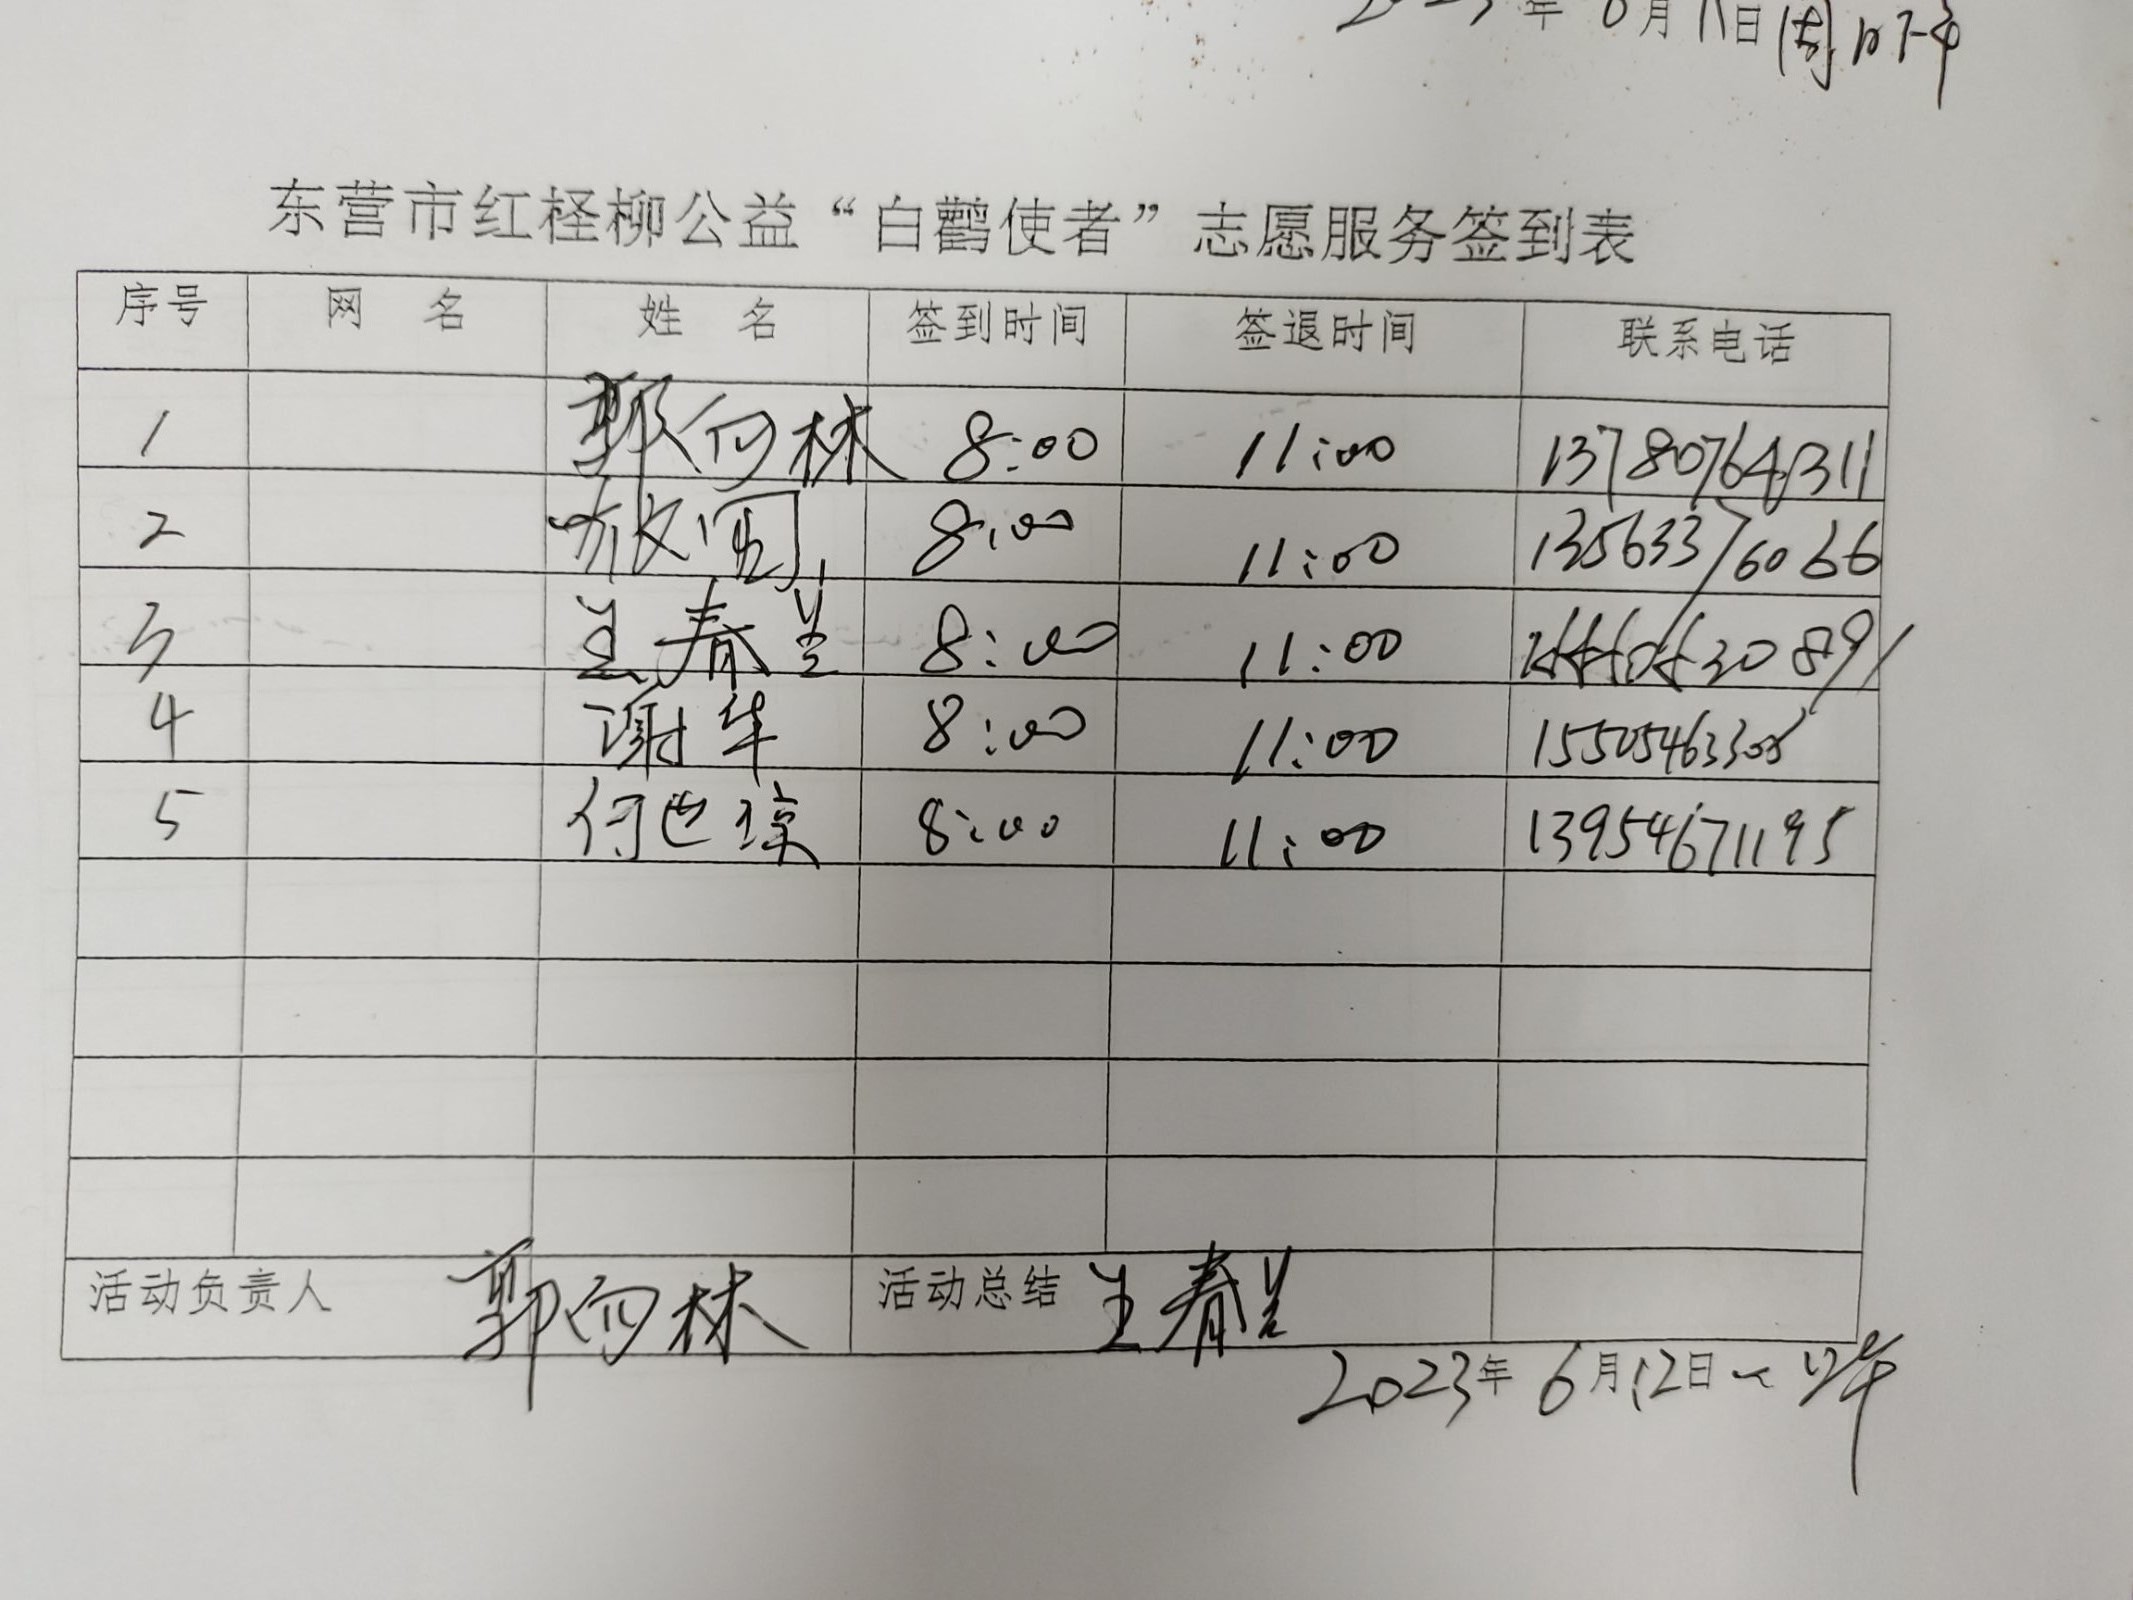 2023年6月11日周日下午
东营市红柽柳公益“白鹳使者”志愿服务签到表
序号 网 名 姓 名 签到时间 签退时间 联系电话
1 郭向林 8:00 11:00 13780764311
2 8:00 11:00 13563376066
3 王春兰 8:00 11:00
4 谢华 8:00 11:00
5 何世琼 8:00 11:00 13954671195
活动负责人 郭向林 活动总结 王春兰
2023年6月12日